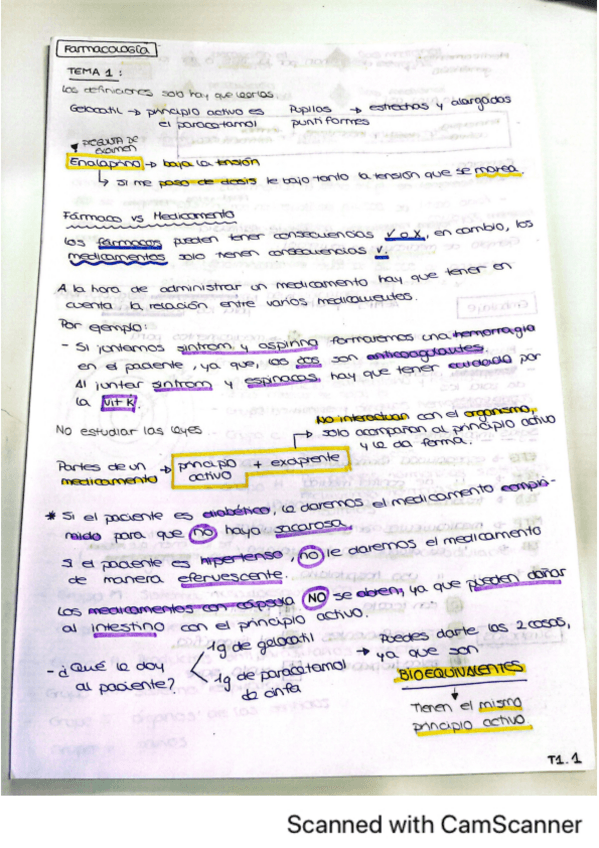 FARMACOLOGÍA
TEMA 1:
Las definiciones solo hay que leerlas
Gelocatil → principio activo es el paracetamol
Pupilas puntiformes → estrechas y alargadas
PREGUNTA DE EXAMEN
Enalaprino → baja la tensión
↳ Si me paso de dosis le bajo tanto la tensión que se marea.
Fármaco vs Medicamento
Los fármacos pueden tener consecuencias ✓ o X, en cambio, los
medicamentos solo tienen consecuencias ✓.
A la hora de administrar un medicamento hay que tener en
cuenta la relación entre varios medicamentos.
Por ejemplo:
- Si juntamos sintrom y aspirina formaremos una hemorragia
en el paciente, ya que, los dos son anticoagulantes.
Al juntar sintrom y espinacas, hay que tener cuidado por
la vit K.
No estudiar las leyes
No interactúan con el organismo,
→ solo acompañan al principio activo
y le da forma.
Partes de un medicamento → principio activo + exapiente
* Si el paciente es diabético, le daremos el medicamento compri-
mido para que no haya sacarosa.
Si el paciente es hipertenso, no le daremos el medicamento
de manera efervescente.
Los medicamentos con cápsula NO se abren, ya que pueden dañar
al intestino con el principio activo.
- ¿Qué le doy al paciente?
1g de galocatil
1g de paracetamol de cinfa
→ Puedes darle las 2 cosas,
ya que son
BIOEQUIVALENTES
↓
Tienen el mismo
principio activo
T1.1
Scanned with CamScanner